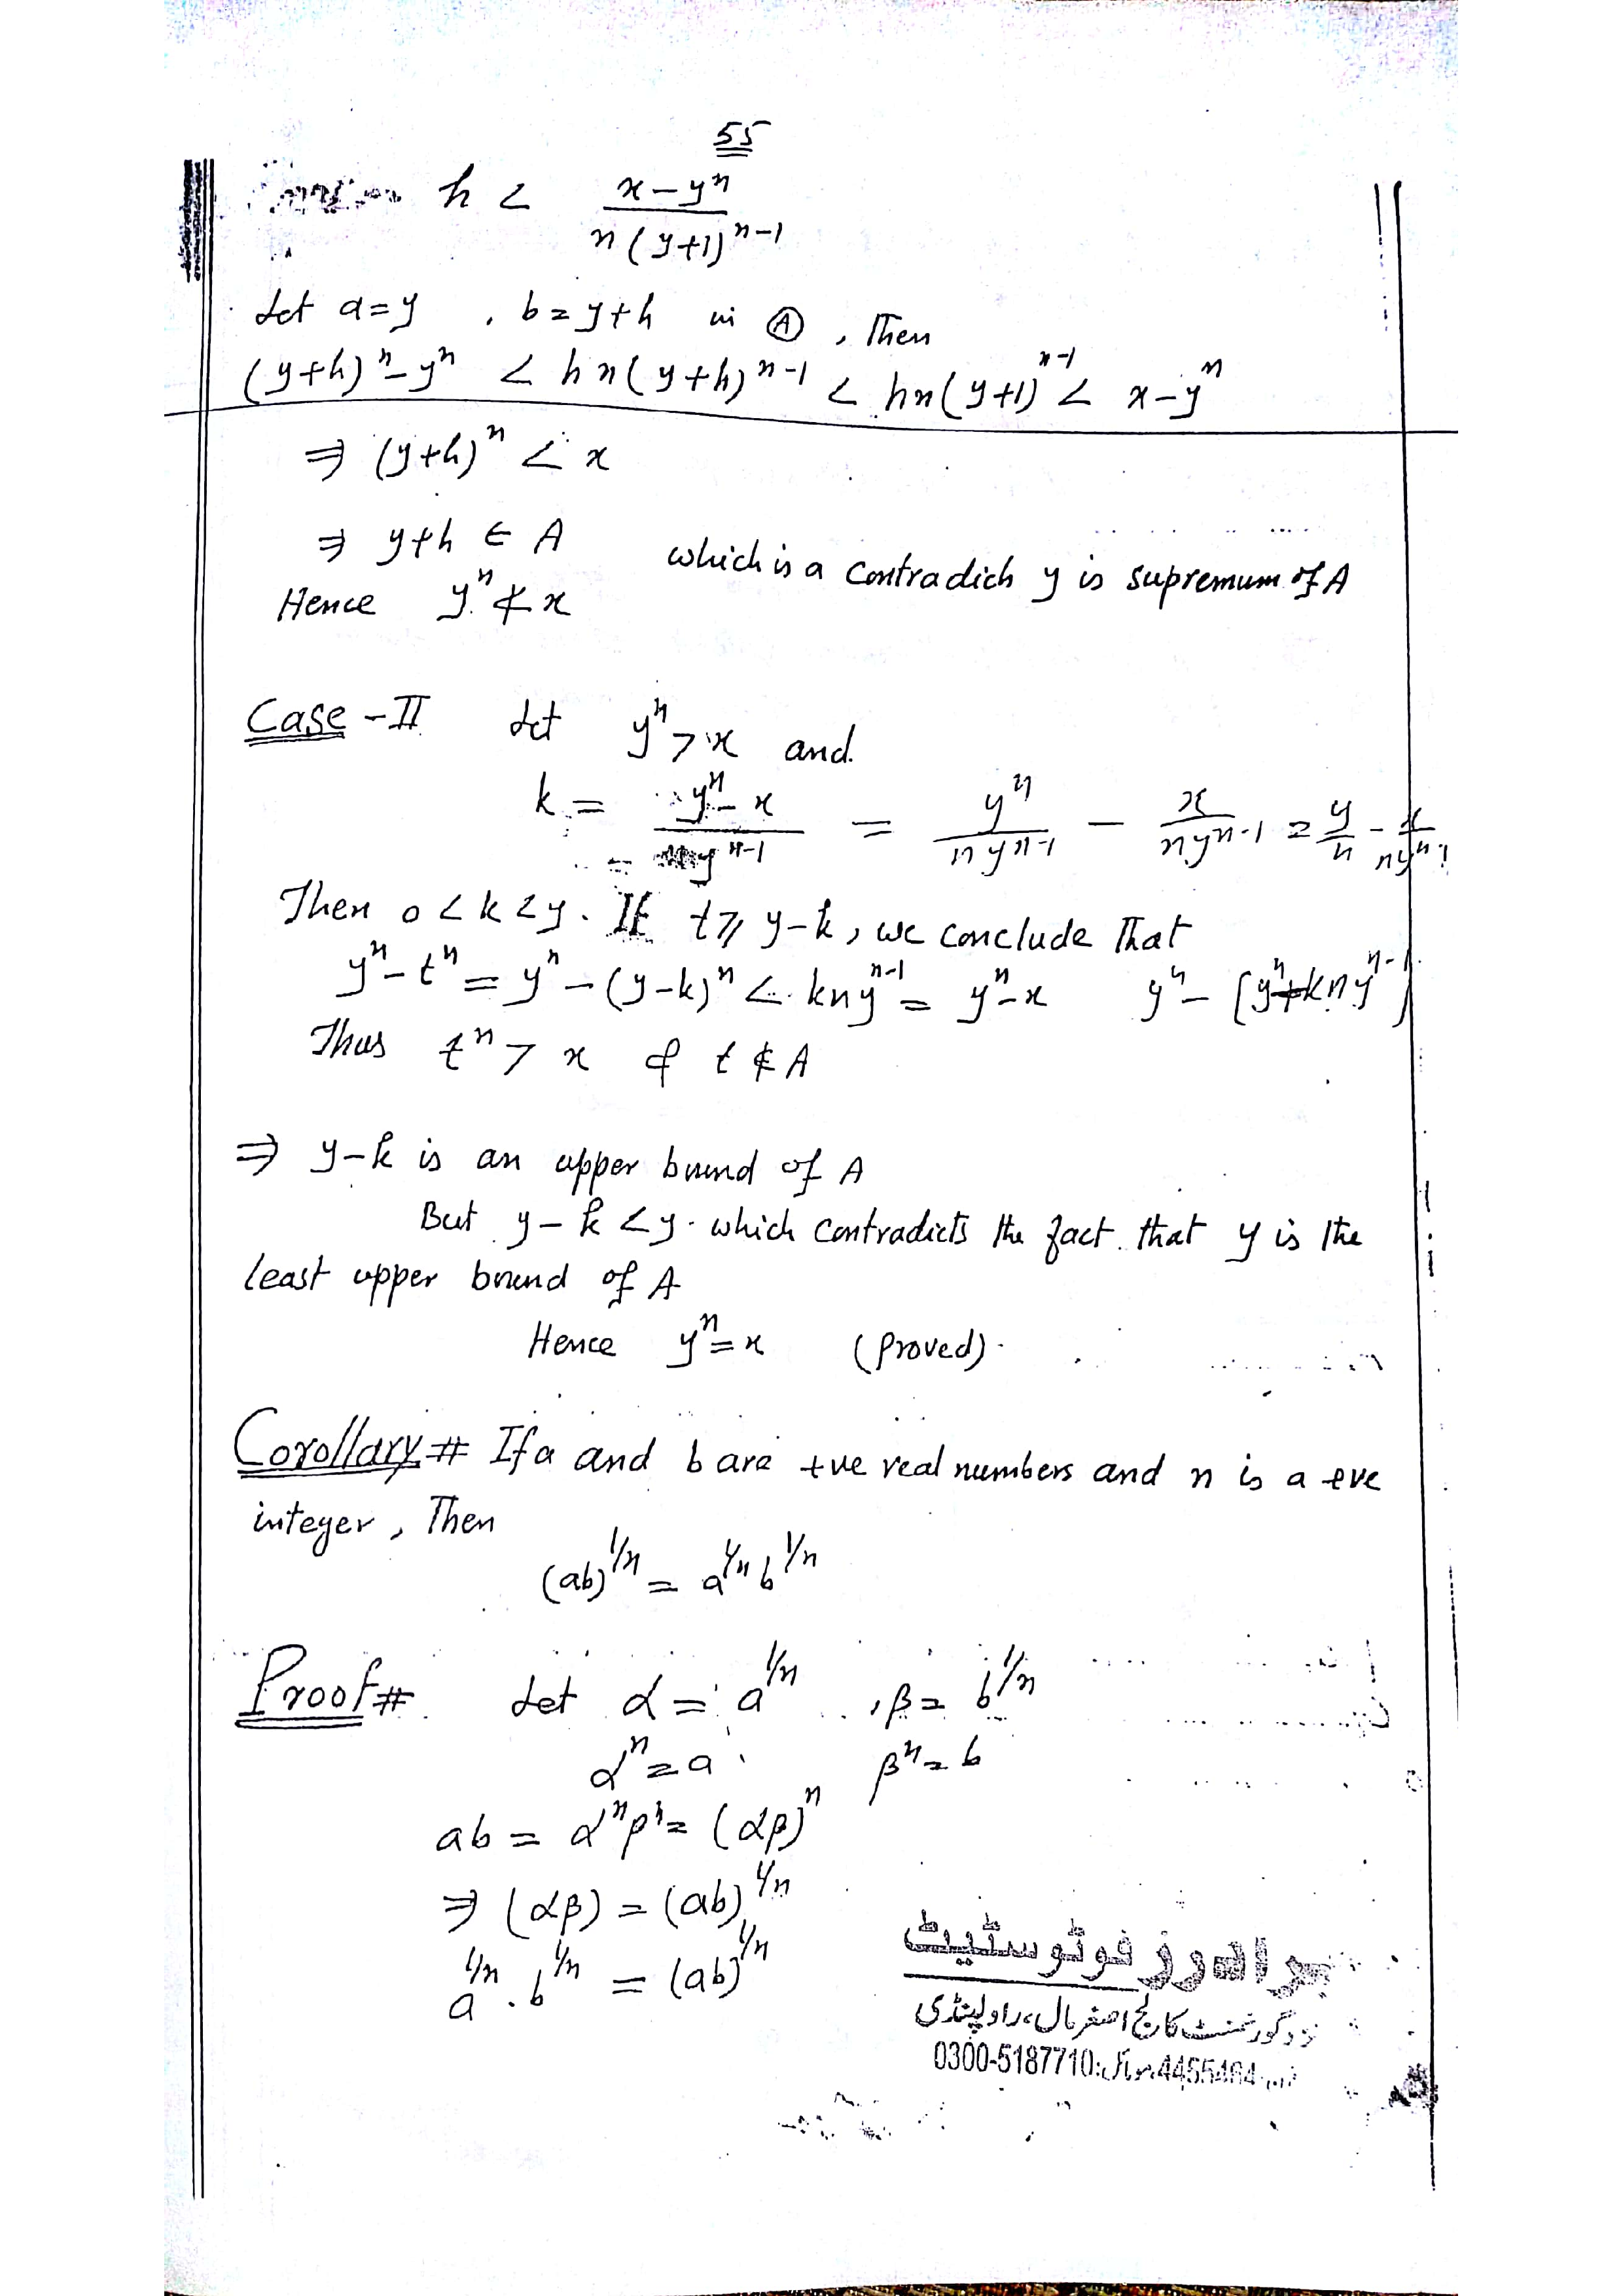 55
h < (x-yⁿ)/(n(y+1)ⁿ⁻¹)
Let a=y , b=y+h in Ⓐ , Then
(y+h)ⁿ-yⁿ < hn(y+h)ⁿ⁻¹ < hn(y+1)ⁿ⁻¹ < x-yⁿ
⇒ (y+h)ⁿ < x
⇒ y+h ∈ A which is a Contradich y is supremum of A
Hence yⁿ ≮ x
Case-II Let yⁿ > x and
k = (yⁿ-x)/(nyⁿ⁻¹) = yⁿ/(nyⁿ⁻¹) - x/(nyⁿ⁻¹) = y/n - x/(nyⁿ⁻¹)
Then 0<k<y. If t ≥ y-k, we conclude That
yⁿ-tⁿ = yⁿ-(y-k)ⁿ < knyⁿ⁻¹ = yⁿ-x yⁿ-[yⁿ+knyⁿ⁻¹]
Thus tⁿ > x & t ∉ A
⇒ y-k is an upper bound of A
But y-k <y. which Contradicts the fact that y is the
least upper bound of A
Hence yⁿ=x (Proved).
Corollary# If a and b are +ve real numbers and n is a +ve
integer, Then
(ab)^1/n = a^1/n b^1/n
Proof# Let α = a^1/n , β = b^1/n
αⁿ = a βⁿ = b
ab = αⁿβⁿ = (αβ)ⁿ
⇒ (αβ) = (ab)^1/n
a^1/n . b^1/n = (ab)^1/n
برادرز فوٹوسٹیٹ
نزد گورنمنٹ کالج اصغر مال، راولپنڈی
موبائل:0300-5187710